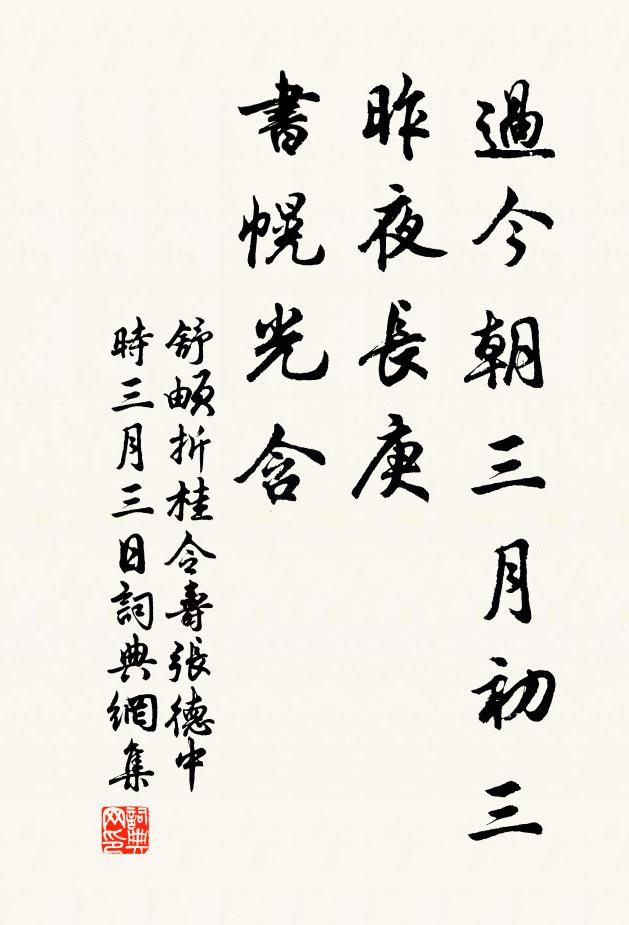 過今朝三月初三
昨夜長庚
書幌光含
舒頔折桂令壽張德中
時三月三日詞典網集
詞典网印